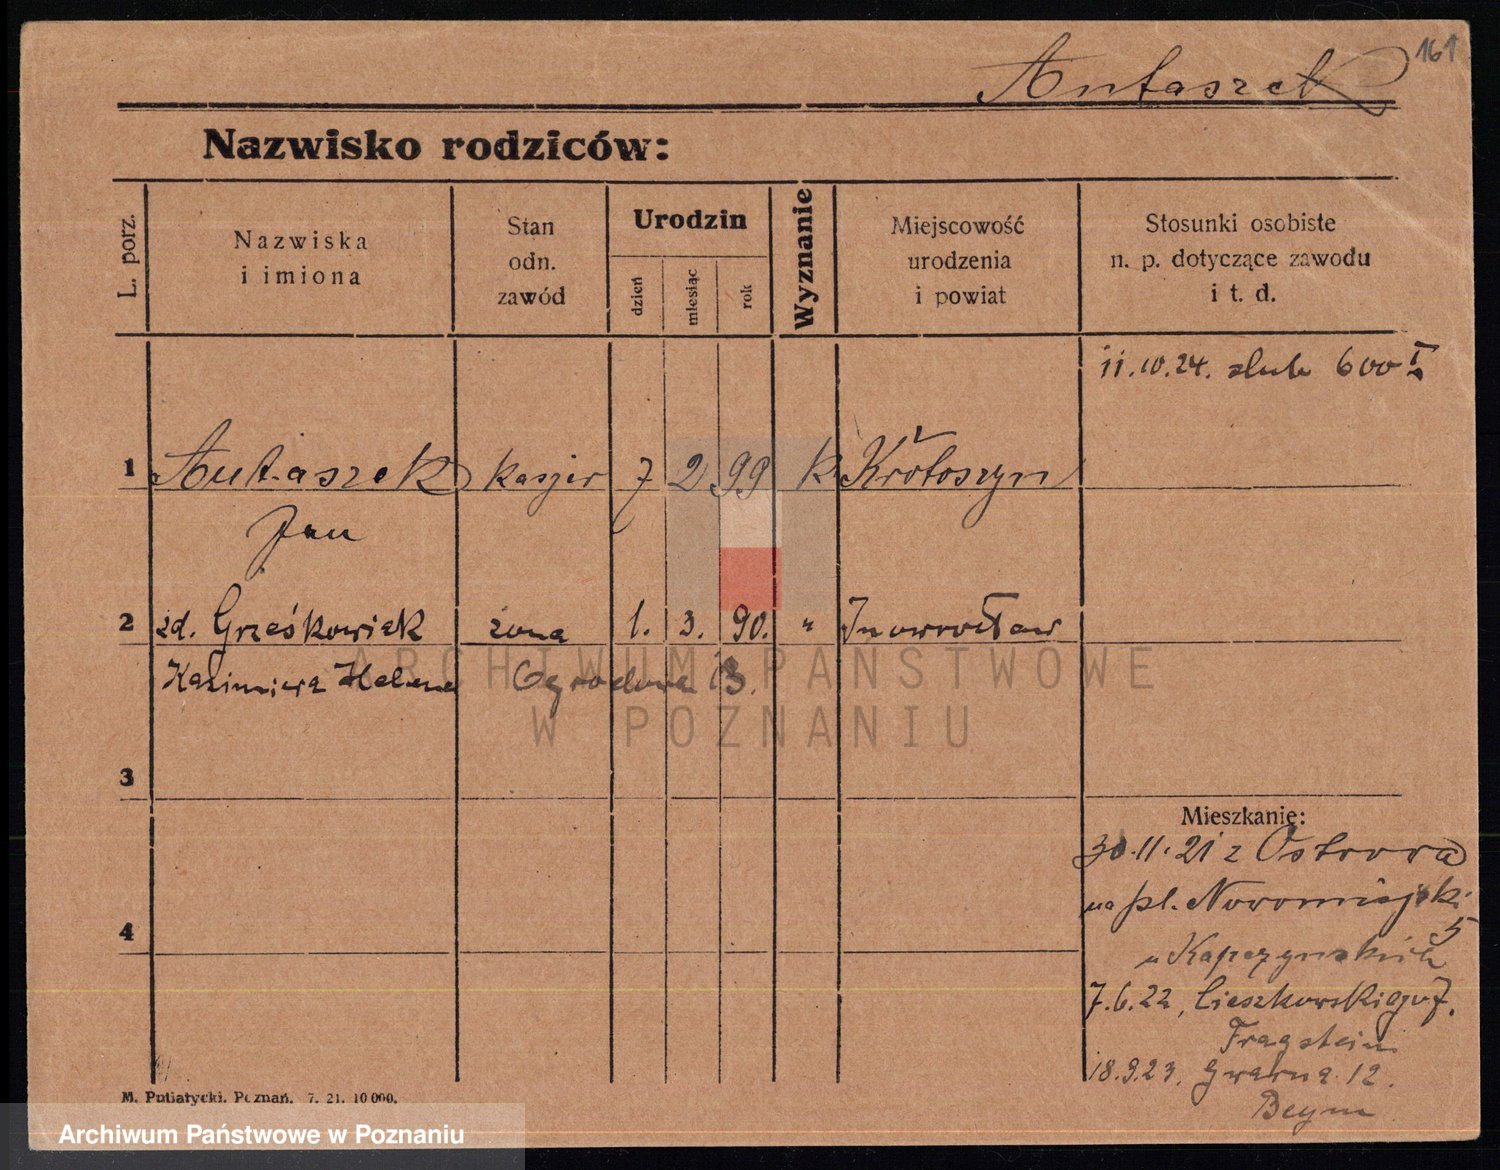 161
Antaszek
Nazwisko rodziców:
L. porz.
Nazwiska
i imiona
Stan
odn.
zawód
Urodzin
dzień
miesiąc
rok
Wyznanie
Miejscowość
urodzenia
i powiat
Stosunki osobiste
n. p. dotyczące zawodu
i t. d.
11.10.24. ślub 600
1 Antaszek kasjer 7 2 99 k Krotoszyn
Jan
2 zd. Grześkowiak żona 1. 3. 90. " Inowrocław
Kazimiera Helena Ogrodowa 13.
ARCHIWUM PAŃSTWOWE
W POZNANIU
3
Mieszkanie:
30.11.21 z Ostrowa
na pl. Nowomiejski
5
4
u Kapczyńskich
7.6.22, Cieszkowskiego 7.
Fragstein
18.9.23. Gwarna 12.
Beym
M. Putiatycki. Poznań. 7. 21. 10 000.
Archiwum Państwowe w Poznaniu